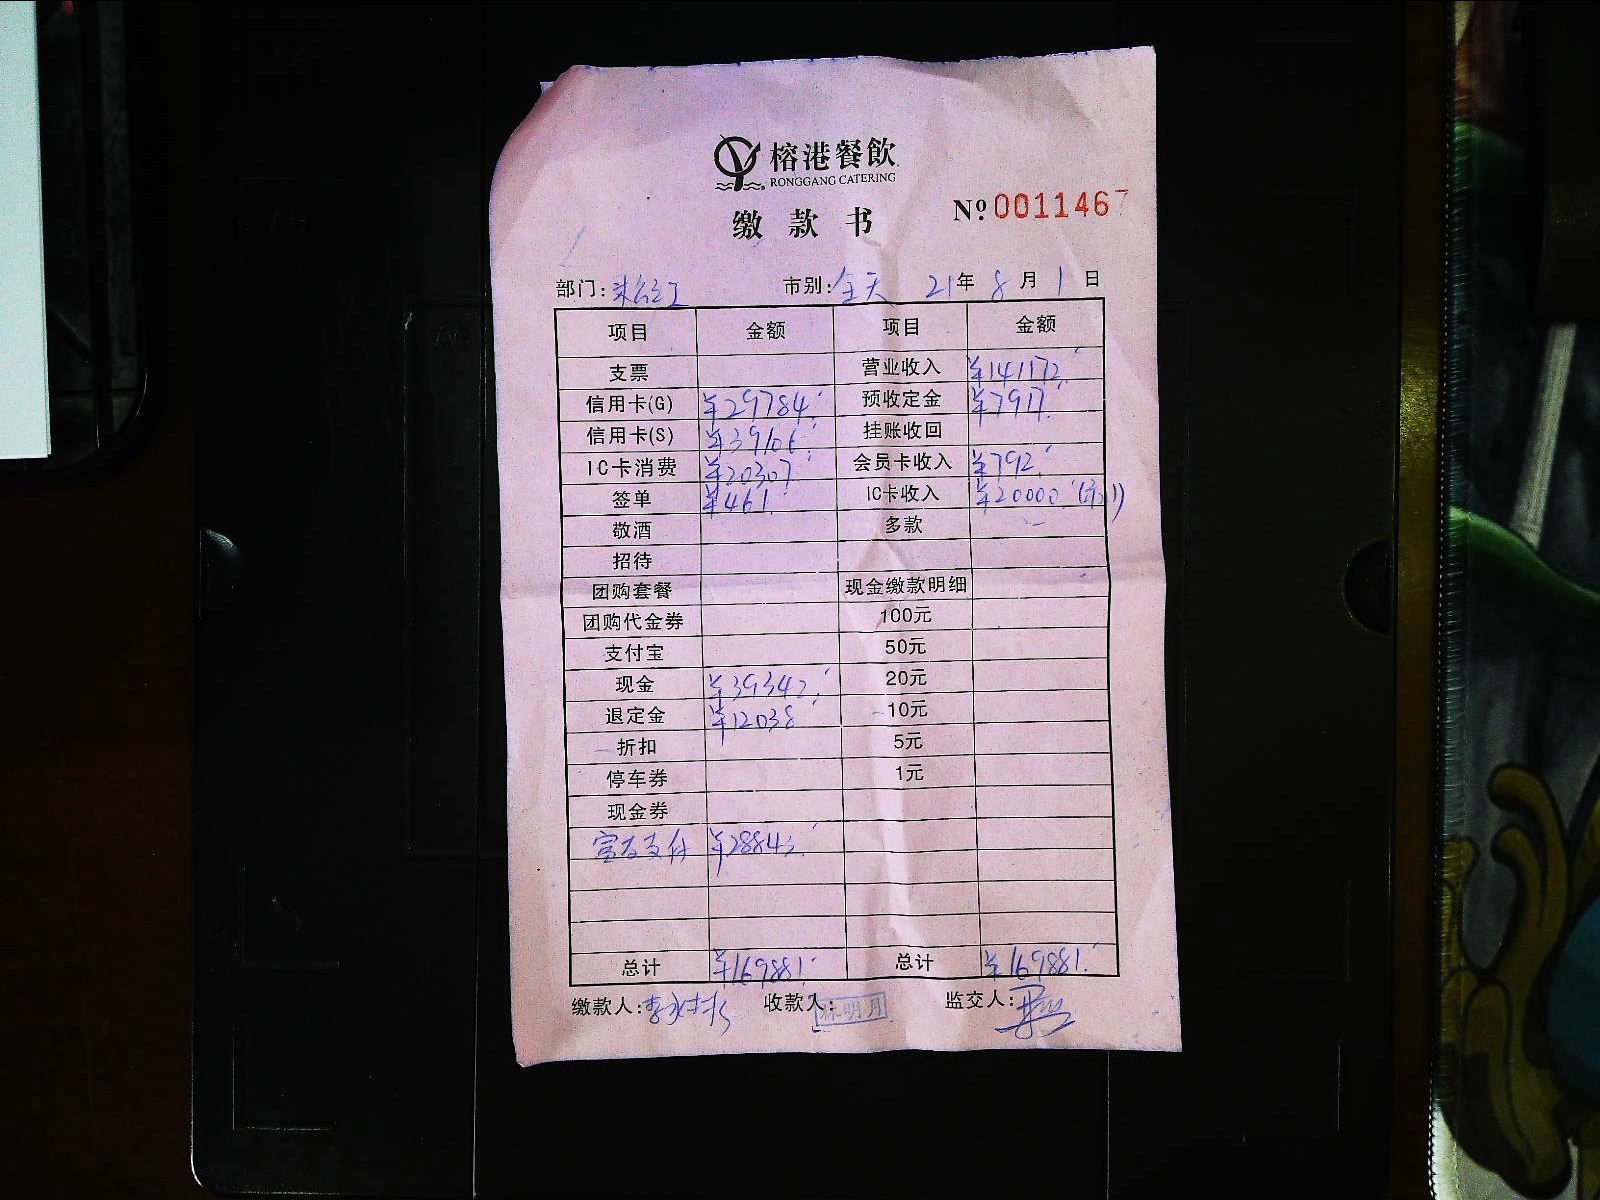 榕港餐飲
RONGGANG CATERING
缴款书 Nº 0011467
部门: 市别:全天 21年 8月 1日
项目 金额 项目 金额
支票 营业收入 ¥141172.
信用卡(G) ¥29784. 预收定金 ¥7917.
信用卡(S) ¥39106. 挂账收回
IC卡消费 ¥20307 会员卡收入 ¥792.
签单 ¥461. IC卡收入 ¥20000.
敬酒 多款
招待
团购套餐 现金缴款明细
团购代金券 100元
支付宝 50元
现金 ¥39342. 20元
退定金 ¥12038 10元
折扣 5元
停车券 1元
现金券
富友支付 ¥28843.
总计 ¥169881. 总计 ¥169881.
缴款人: 收款人:林明月 监交人: